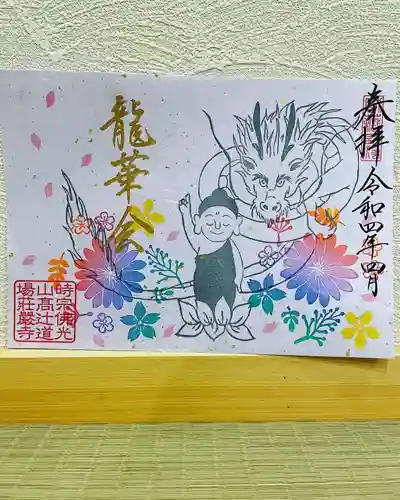 奉拝
令和四年四月
龍華会
時宗佛光
山髙辻道
場荘厳寺